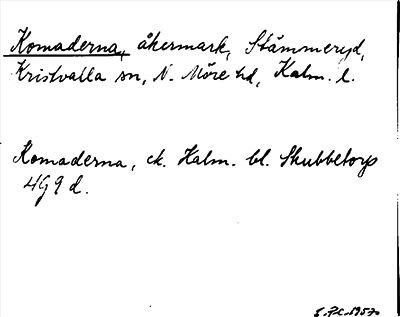 Komaderna, åkermark, Stämmeryd,
Kristvalla sn, N. Möre hd, Kalm. l.
Komaderna, ek. Kalm. bl. Skubbetorp
4G 9 d.